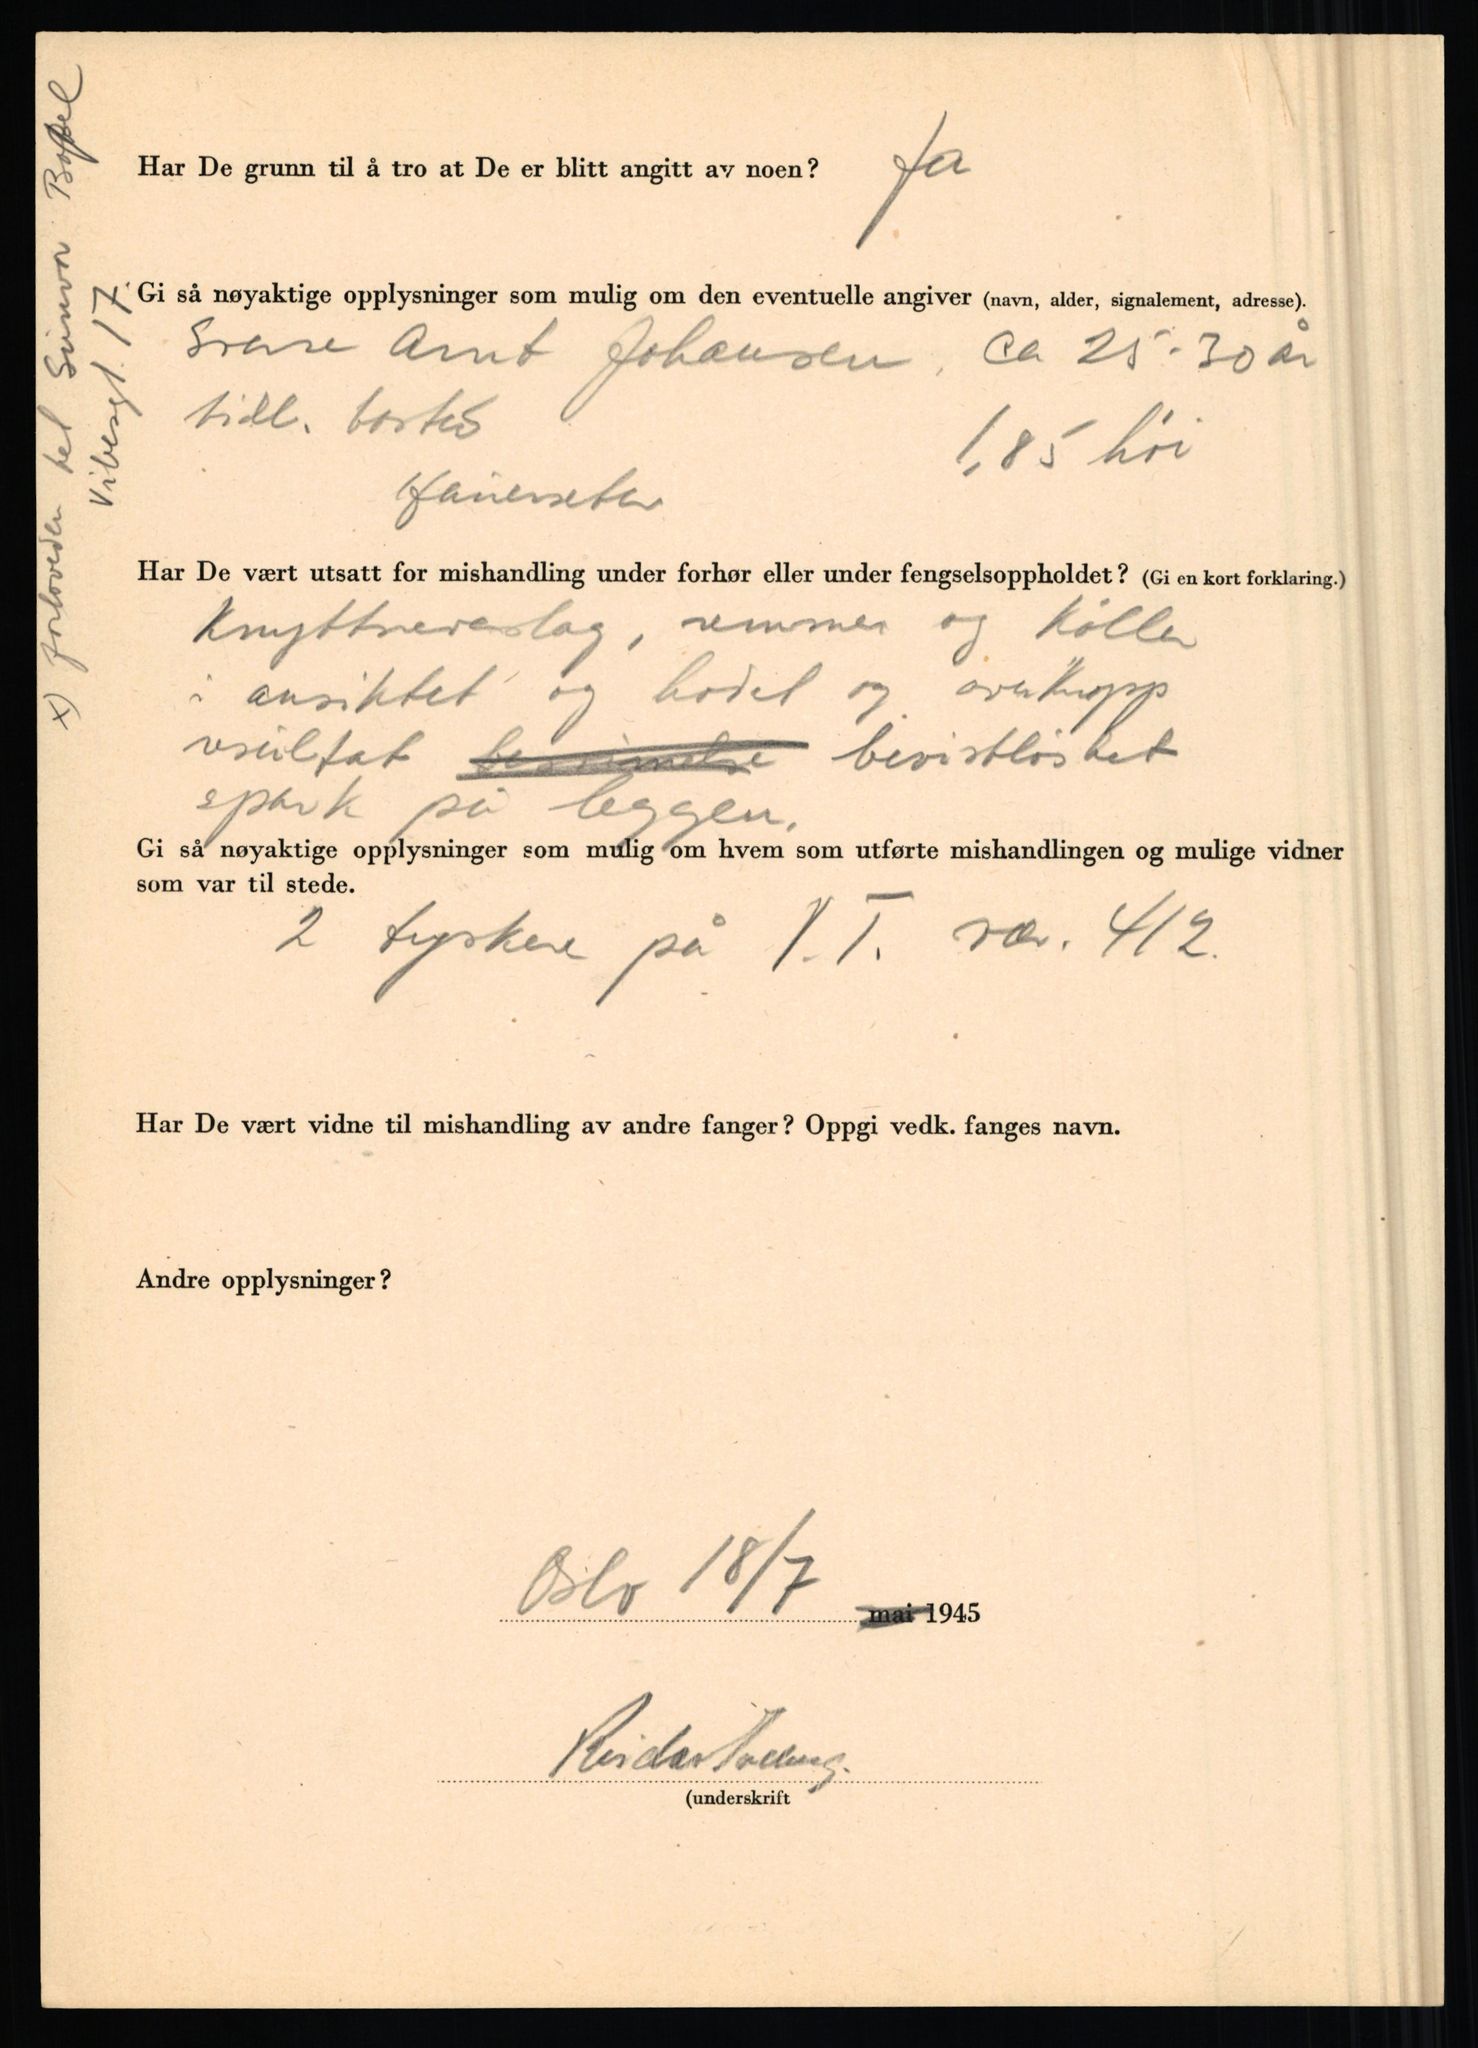 Har De grunn til å tro at De er blitt angitt av noen? Ja
Gi så nøyaktige opplysninger som mulig om den eventuelle angiver (navn, alder, signalement, adresse).
Arnt Johansen, ca 25-30 år
tidl. bosted
1,85 høi
Har De vært utsatt for mishandling under forhør eller under fengselsoppholdet? (Gi en kort forklaring.)
Knyttneveslag, remmer og køller
i ansiktet og hodet og overkropp
resultat bevistløshet
spark på leggen.
Gi så nøyaktige opplysninger som mulig om hvem som utførte mishandlingen og mulige vidner
som var til stede.
2 tyskere på V.T. vær. 412.
Har De vært vidne til mishandling av andre fanger? Oppgi vedk. fanges navn.
Andre opplysninger?
Oslo 18/7 mai 1945
Reidar
(underskrift
x) forloveden het
Vibesgt. 17.